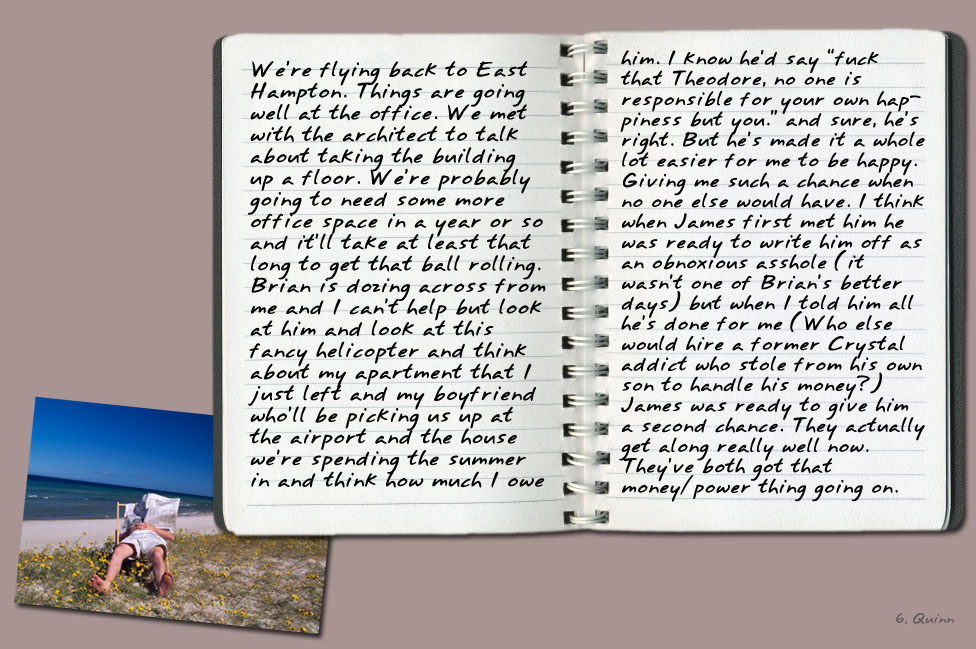 We're flying back to East
Hampton. Things are going
well at the office. We met
with the architect to talk
about taking the building
up a floor. We're probably
going to need some more
office space in a year or so
and it'll take at least that
long to get that ball rolling.
Brian is dozing across from
me and I can't help but look
at him and look at this
fancy helicopter and think
about my apartment that I
just left and my boyfriend
who'll be picking us up at
the airport and the house
we're spending the summer
in and think how much I owe
him. I know he'd say "fuck
that Theodore, no one is
responsible for your own hap-
piness but you." and sure, he's
right. But he's made it a whole
lot easier for me to be happy.
Giving me such a chance when
no one else would have. I think
when James first met him he
was ready to write him off as
an obnoxious asshole (it
wasn't one of Brian's better
days) but when I told him all
he's done for me (Who else
would hire a former Crystal
addict who stole from his own
son to handle his money?)
James was ready to give him
a second chance. They actually
get along really well now.
They've both got that
money/power thing going on.
6, Quinn